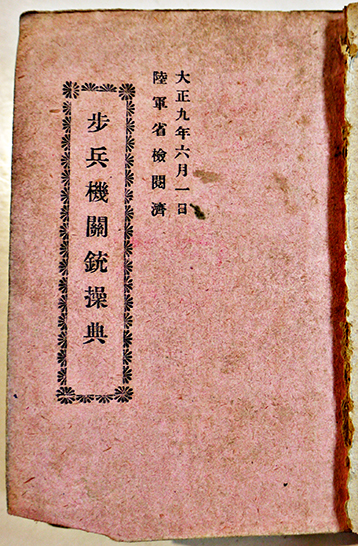 大正九年六月一日
陸軍省檢閱濟
步兵機關銃操典